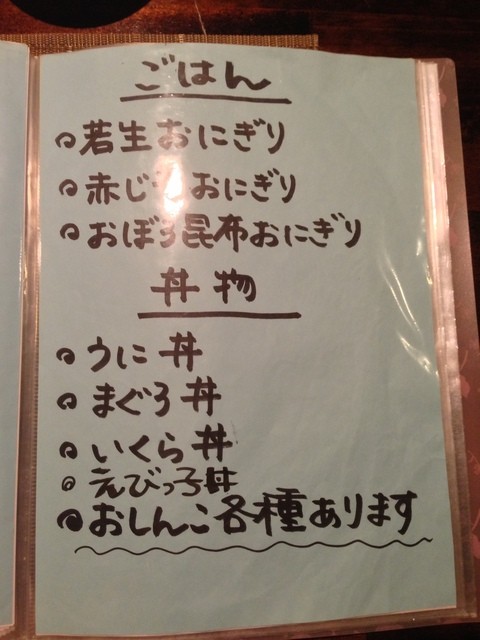 ごはん
若生おにぎり
赤じそおにぎり
おぼろ昆布おにぎり
丼物
うに丼
まぐろ丼
いくら丼
えびっ子丼
おしんこ各種あります